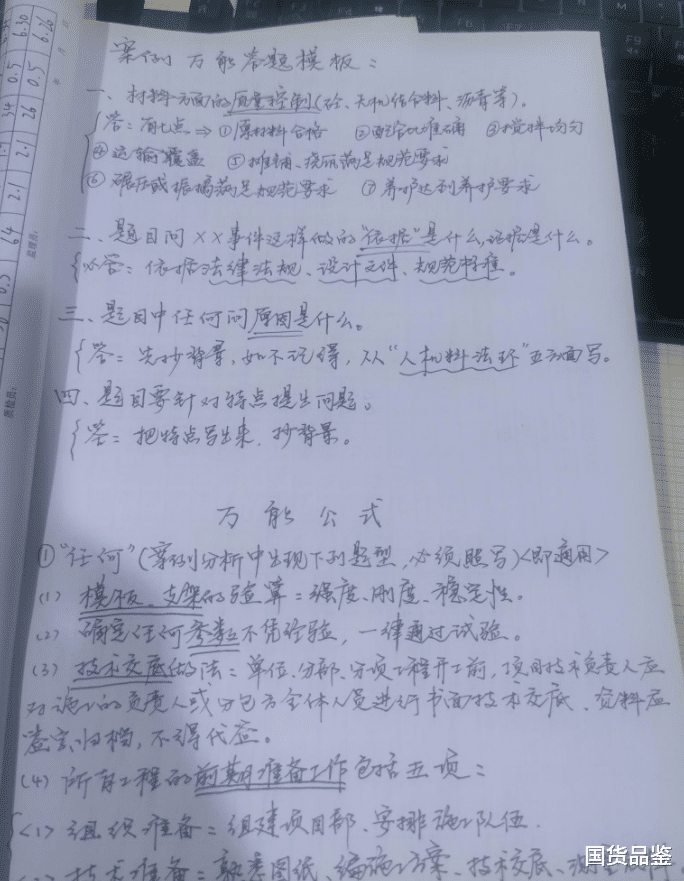 案例万能答题模板：
一、材料方面的质量控制(砼、无机结合料、沥青等)。
答：有七点⇒①原材料合格 ②配合比准确 ③搅拌均匀
④运输覆盖 ⑤摊铺、浇筑满足规范要求
⑥碾压或振捣满足规范要求 ⑦养护达到养护要求
二、题目问XX事件这样做的“依据”是什么,证据是什么。
必答：依据法律法规、设计文件、规范标准。
三、题目中任何问原因是什么。
答：先抄背景,如不记得,从“人机料法环”五方面写。
四、题目要针对特点提出问题。
答：把特点写出来,抄背景。
万能公式
①“任何”(案例分析中出现下列题型,必须照写)<即通用>
(1) 模板、支架的验算：强度、刚度、稳定性。
(2) 确定任何参数不凭经验,一律通过试验。
(3) 技术交底做法：单位、分部、分项工程开工前,项目技术负责人应
对施工的负责人或分包方全体人员进行书面技术交底、资料应
签字归档,不得代签。
(4) 所有工程的前期准备工作包括五项：
<1> 组织准备：组建项目部、安排施工队伍.
技术准备：熟悉图纸、编施工方案、技术交底、测量放样
34 0.5 6.30
26 0.5 6.20
64 2.1 2.1
0.5
监理员:
质检员:
国货品鉴